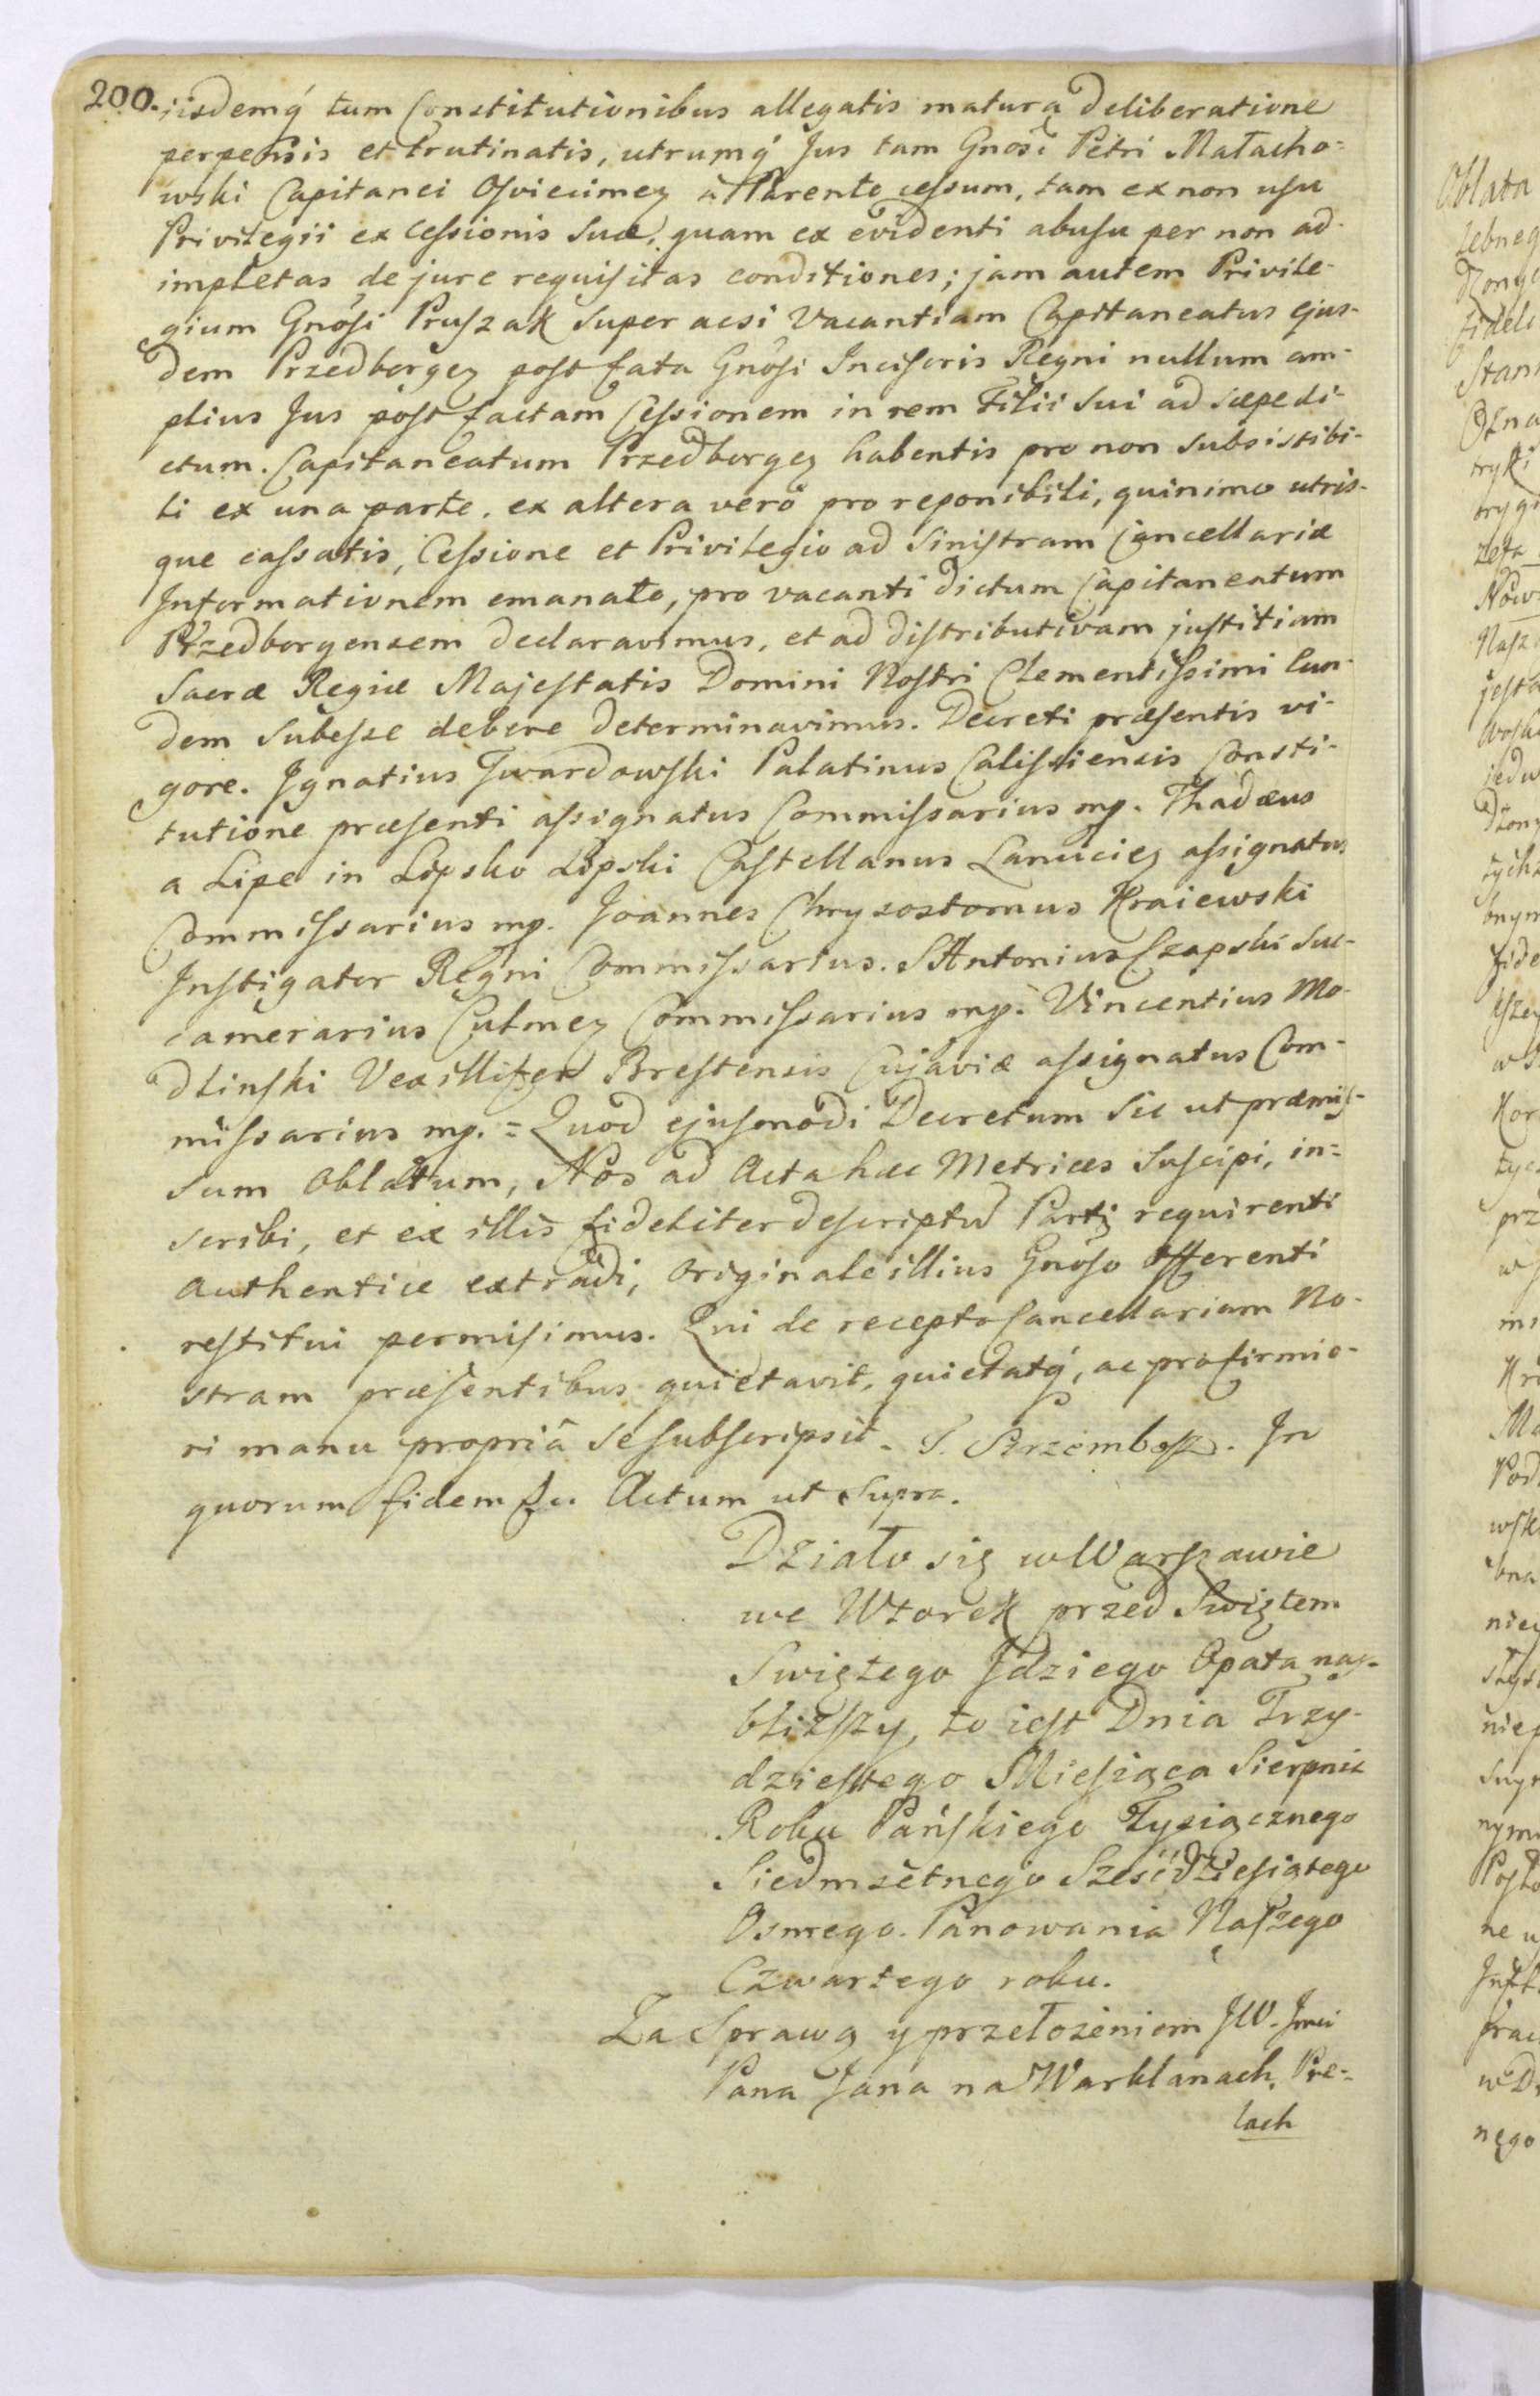 200. iisdemq́ tum Constitutionibus allegatis matura deliberatione
perpensis et trutinatis, utrumq́ Jus tam Gnosi Petri Małacho=
wski Capitanei Osviecimeȝ a Parente cessum, tam ex non usu
Privilegii ex Cessionis suæ, quam ex evidenti abusu per non ad-
impletas de jure requisitas conditiones; jam autem Privile-
gium Gnosi Pruszak super acsi Vacantiam Capitaneatus ejus-
dem Przedborgeȝ post fata Gnosi Incisoris Regni nullum am-
plius Jus post factam Cessionem in rem Filii sui ad sæpe di-
ctum. Capitaneatum Przedborgeȝ habentis pro non subsistibi-
li ex una parte, ex altera verò pro reponibili, quinimo utris-
que cassatis, Cessione et Privilegio ad sinistram Cancellariæ
Informationem emanato, pro vacanti dictum Capitaneatum
Przedborgensem declaravimus, et ad distributivam justitiam
Sacræ Regiæ Majestatis Domini Nostri Clementissimi eun-
dem subesse debere determinavimus. Decreti præsentis vi-
gore. Ignatius Twardowski Palatinus Calissiensis Consti-
tutione præsenti assignatus Commissarius mp. Thadæus
a Lipe in Lipsko Lipski Castellanus Lanucieȝ assignatus
Commissarius mp. Joannes Chrysostomus Kraiewski
Instigator Regni Commissarius. SAntonius Czapski Suc-
camerarius Culmeȝ Commissarius mp. Vincentius Mo-
dlinski Vexillifer Brestensis Cujaviæ assignatus Com-
missarius mp. = Quod ejusmodi Decretum sic ut præmis-
sum Oblatum, Nos ad Acta hæc Metrices suscipi, in=
scribi, et ex illis fideliter descriptum Parti requirenti
authentice extradi, originale illius Gnoso Offerenti
restitui permisimus. Qui de recepto Cancellariam No-
stram præsentibus quietavit, quietatq́, ac pro firmio-
ri manu propriâ se subscripsit. S. Strzembosz. In
quorum fidem &c. Actum ut supra.
Działo się w Warszawie
we Wtorek przed Swiętem
Swiętego Jdziego Opata nay-
bliższy, to iest Dnia Trzy-
dziestego Miesiąca Sierpnia
Roku Pańskiego Tysiącznego
Siedmsetnego Sześćdziesiątego
Osmego. Panowania Naszego
Czwartego roku.
Za Sprawą y przełożeniem JW. Jmci
Pana Jana na Warklanach, Pre=
lach